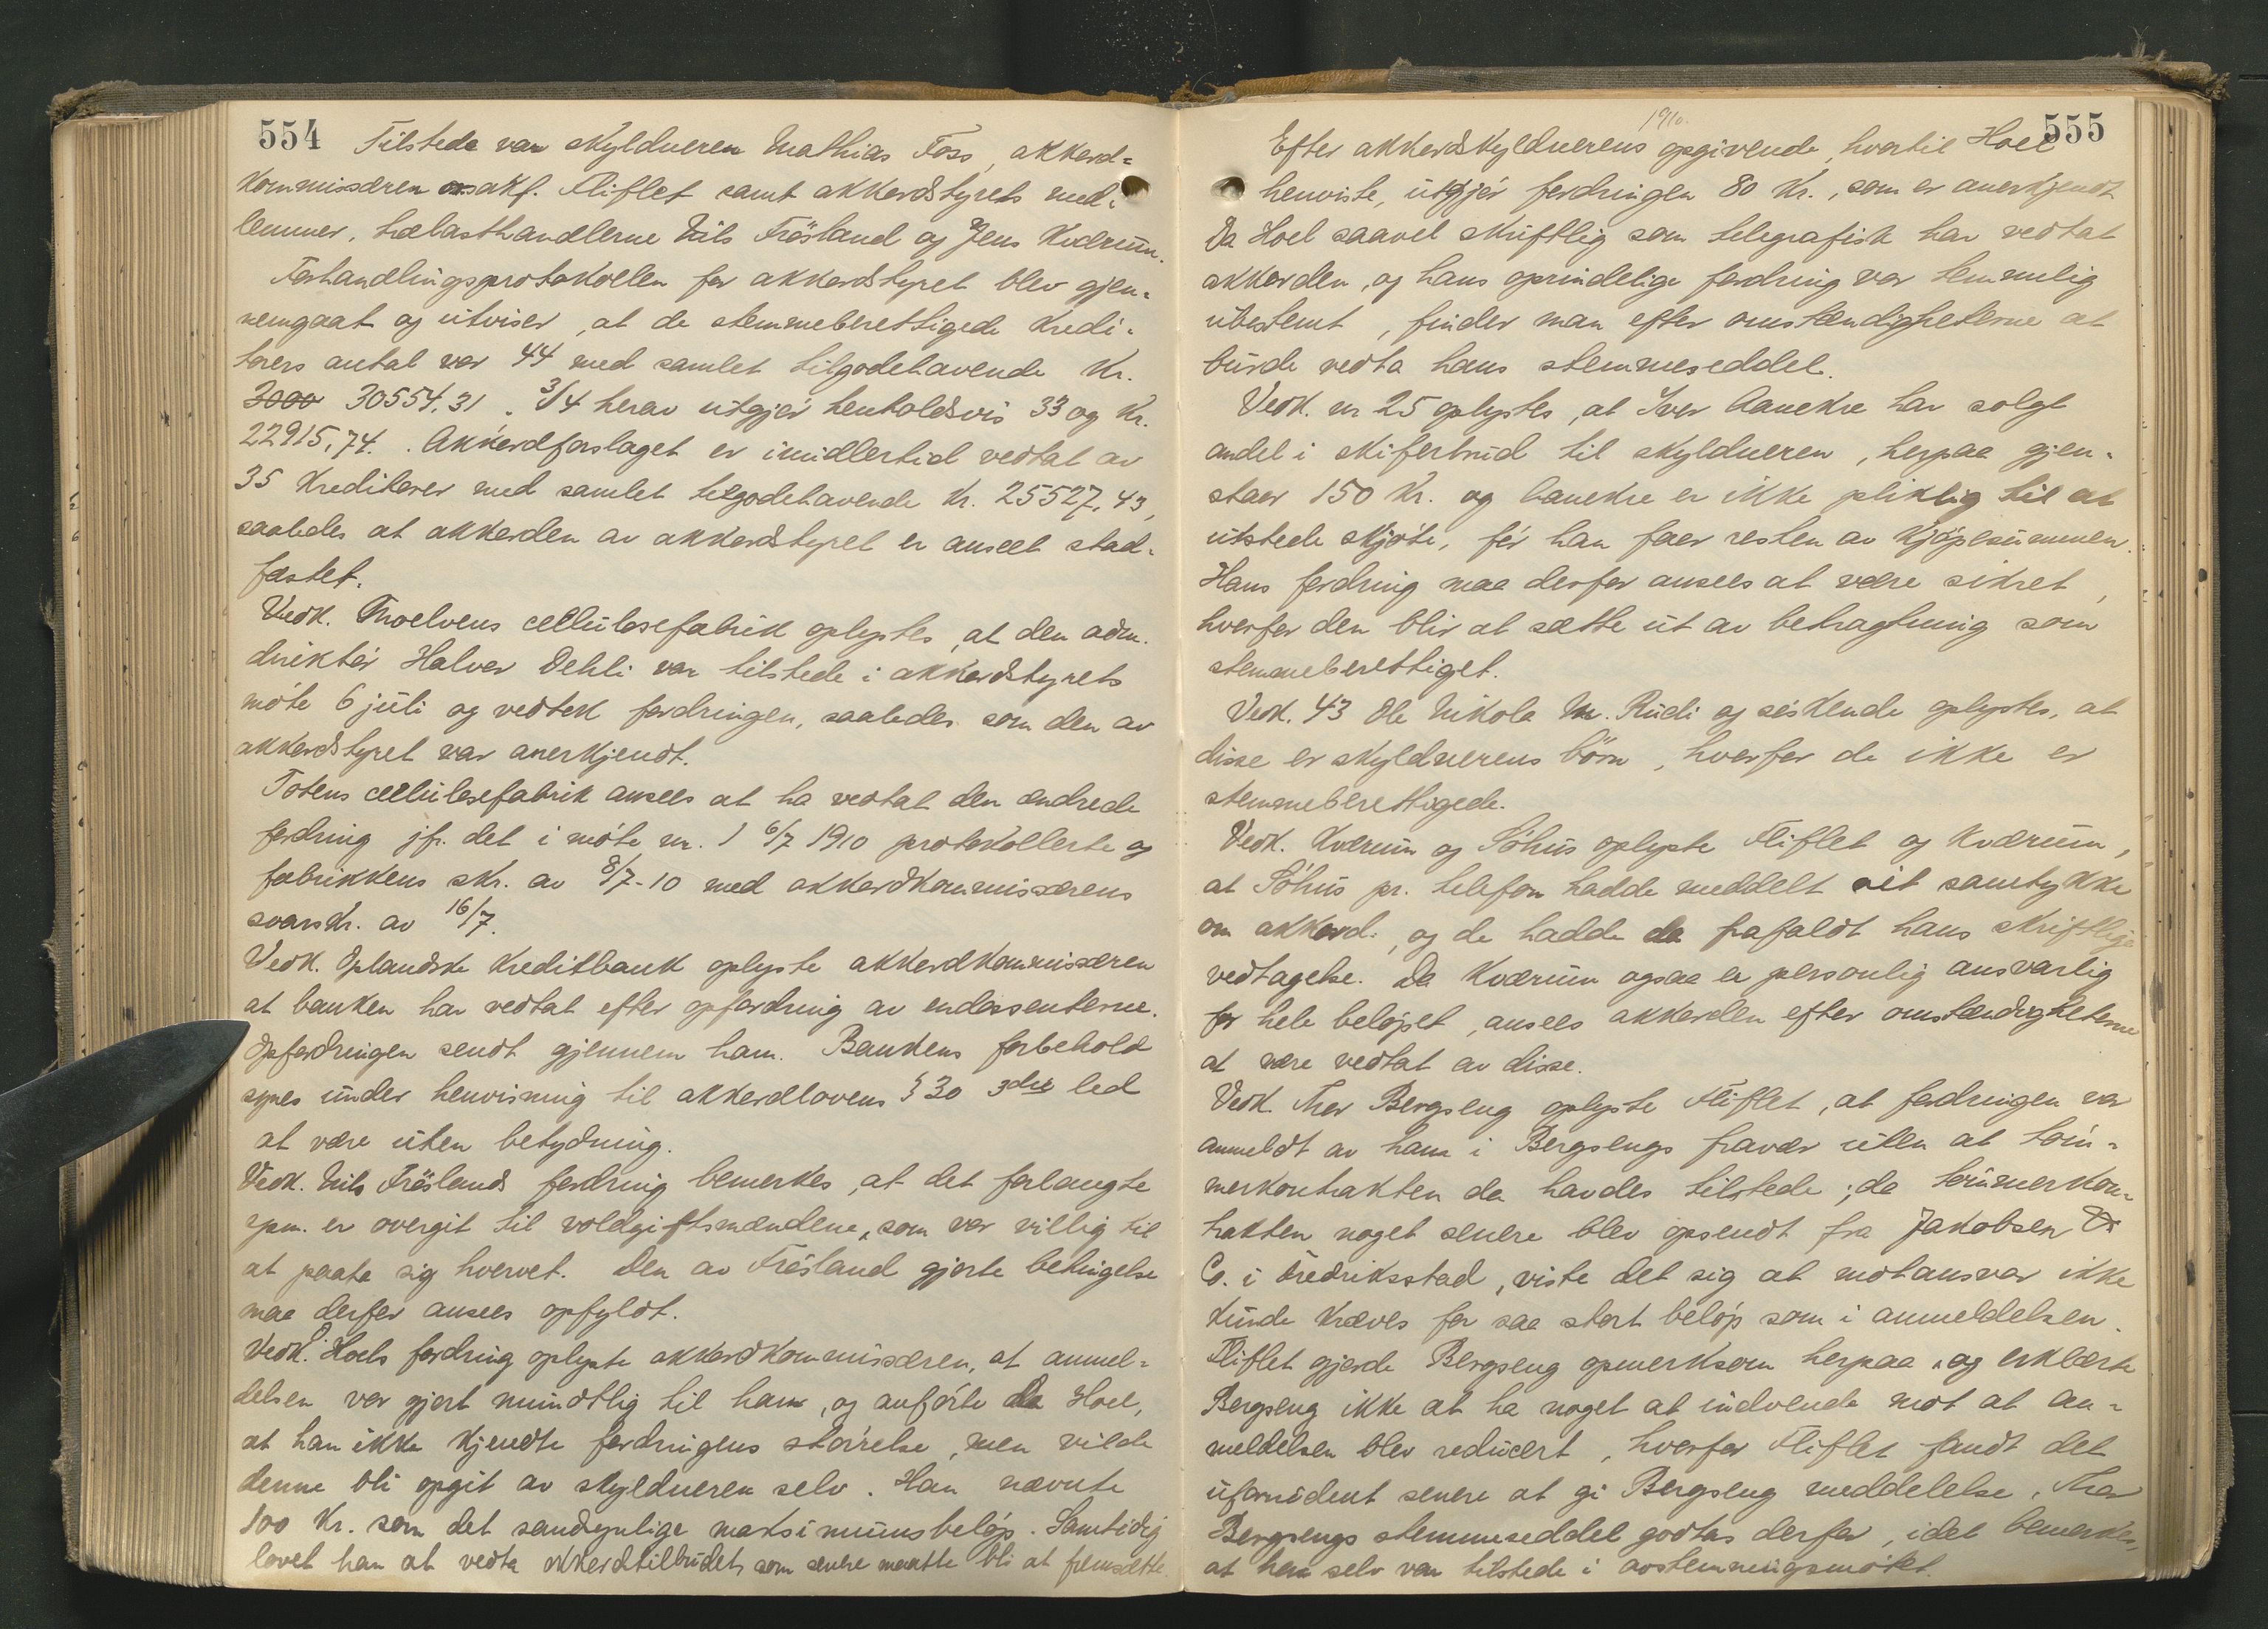 554
Tilstede var skyldneren Mathias Foss, akkord=
kommissæren o.r.sakf. Fliflet samt akkordstyrets med=
lemmer, trælasthandlerne Nils Fröisland og Jens Kværum.
Forhandlingsprotokollen for akkordstyret blev gjen=
nemgaat og utviser, at de stemmeberettigede kredi=
torers antal var 44 med samlet tilgodehavende Kr.
3000 30554,31. 3/4 herav utgjör henholdsvis 33 og Kr.
22915,74. Akkordforslaget er imidlertid vedtat av
35 kreditorer med samlet tilgodehavende Kr. 25527,43,
saaledes at akkorden av akkordstyret er anseet stad=
fæstet.
Vedk. Moelvens cellulosefabrik oplystes, at den adm.
direktör Halvor Dehli var tilstede i akkordstyrets
möte 6 juli og vedtok fordringen, saaledes som den av
akkordstyret var anerkjendt.
Totens cellulosefabrik ansees at ha vedtat den ændrede
fordring jfr. det i möte nr. 1 6/7 1910 protokollerte og
fabrikkens skr. av 8/7-10 med akkordkommissærens
svarskr. av 16/7.
Vedk. Oplandske Kreditbank oplyste akkordkommissæren
at banken har vedtat efter opfordring av endossenterne.
Opfordringen sendt gjennem ham. Bankens forbehold
synes under henvisning til akkordlovens § 30 3dje led
at være uten betydning.
Vedk. Nils Fröislands fordring bemerkes, at det forlangte
spm. er overgit til voldgiftsmændene, som var villig til
at paata sig hvervet. Den av Fröisland gjorte betingelse
maa derfor ansees opfyldt.
Vedk. Hoels fordring oplyste akkordkommissæren, at anmel=
delsen var gjort mundtlig til ham, og anförte da Hoel,
at han ikke kjendte fordringens störrelse, men vilde
denne bli opgit av skyldneren selv. Han nævnte
100 Kr. som det sandsynlige maksimumsbelöp. Samtidig
lovet han at vedta akkordtilbudet, som senere maatte bli at fremsætte.
1910.
555
Efter akkordskyldnerens opgivende, hvortil Hoel
henviste, utgjör fordringen 80 Kr., som er anerkjendt
Da Hoel saavel skriftlig som telegrafisk har vedtat
akkorden, og hans oprindelige fordring var temmelig
ubestemt, finder man efter omstændigheterne at
burde vedta hans stemmeseddel.
Vedk. nr 25 oplystes, at Iver Aanekre har solgt
andel i skiferbrud til skyldneren, herpaa gjen=
staar 150 Kr. og Aanekre er ikke pliktig til at
utstede skjöte, för han faar resten av kjöpesummen.
Hans fordring maa derfor ansees at være sikret,
hvorfor den blir at sætte ut av betragtning som
stemmeberettiget.
Vedk. 43 Ole Nikola M. Rudi og söskende oplystes, at
disse er skyldnerens börn, hvorfor de ikke er
stemmeberettigede.
Vedk. Kværum og Söhus oplyste Fliflet og Kværum,
at Söhus pr. telefon hadde meddelt sit samtykke
om akkord, og de hadde da frafaldt hans skriftlige
vedtagelse. Da Kværum ogsaa er personlig ansvarlig
for hele belöpet, ansees akkorden efter omstændigheterne
at være vedtat av disse.
Vedk. Thor Bergseng oplyste Fliflet, at fordringen var
anmeldt av ham i Bergsengs fravær uten at töm=
merkontrakten da havdes tilstede; da tömmerkon=
trakten noget senere blev opsendt fra Jakobsen &
Co. i Fredriksstad, viste det sig at motansvar ikke
kunde kræves for saa stort belöp som i anmeldelsen.
Fliflet gjorde Bergseng opmerksom herpaa, og erklærte
Bergseng ikke at ha noget at indvende mot at an=
meldelsen blev reducert, hvorfor Fliflet fandt det
ufornödent senere at gi Bergseng meddelelse. Thor
Bergsengs stemmeseddel godtas derfor, idet bemerkes,
at han selv var tilstede i avstemningsmötet.